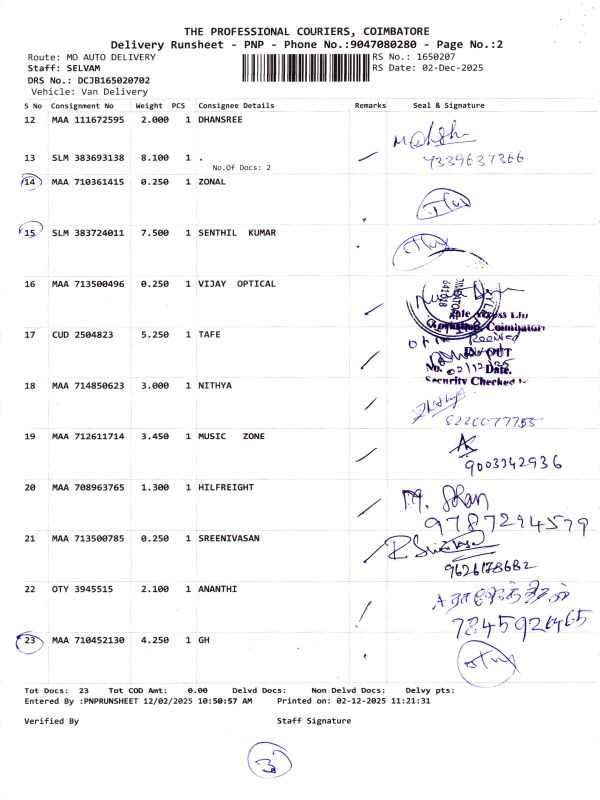 THE PROFESSIONAL COURIERS, COIMBATORE
Delivery Runsheet - PNP - Phone No.:9047080280 - Page No.:2
Route: MO AUTO DELIVERY RS No.: 1650207
Staff: SELVAM RS Date: 02-Dec-2025
DRS No.: DCJB165020702
Vehicle: Van Delivery
S No Consignment No Weight PCS Consignee Details Remarks Seal & Signature
12 MAA 111672595 2.000 1 DHANSREE
13 SLM 383693138 8.100 1 . 7339637366
No.Of Docs: 2
14 MAA 710361415 0.250 1 ZONAL
15 SLM 383724011 7.500 1 SENTHIL KUMAR
16 MAA 713500496 0.250 1 VIJAY OPTICAL
Coimbatore
17 CUD 2504823 5.250 1 TAFE
Received
IN OUT
No. Date.
Security Checked
18 MAA 714850623 3.000 1 NITHYA
19 MAA 712611714 3.450 1 MUSIC ZONE
9003342936
20 MAA 708963765 1.300 1 HILFREIGHT
9787294579
21 MAA 713500785 0.250 1 SREENIVASAN
9626178682
22 OTY 3945515 2.100 1 ANANTHI
23 MAA 710452130 4.250 1 GH
Tot Docs: 23 Tot COD Amt: 0.00 Delvd Docs: Non Delvd Docs: Delvy pts:
Entered By :PNPRUNSHEET 12/02/2025 10:50:57 AM Printed on: 02-12-2025 11:21:31
Verified By Staff Signature
3